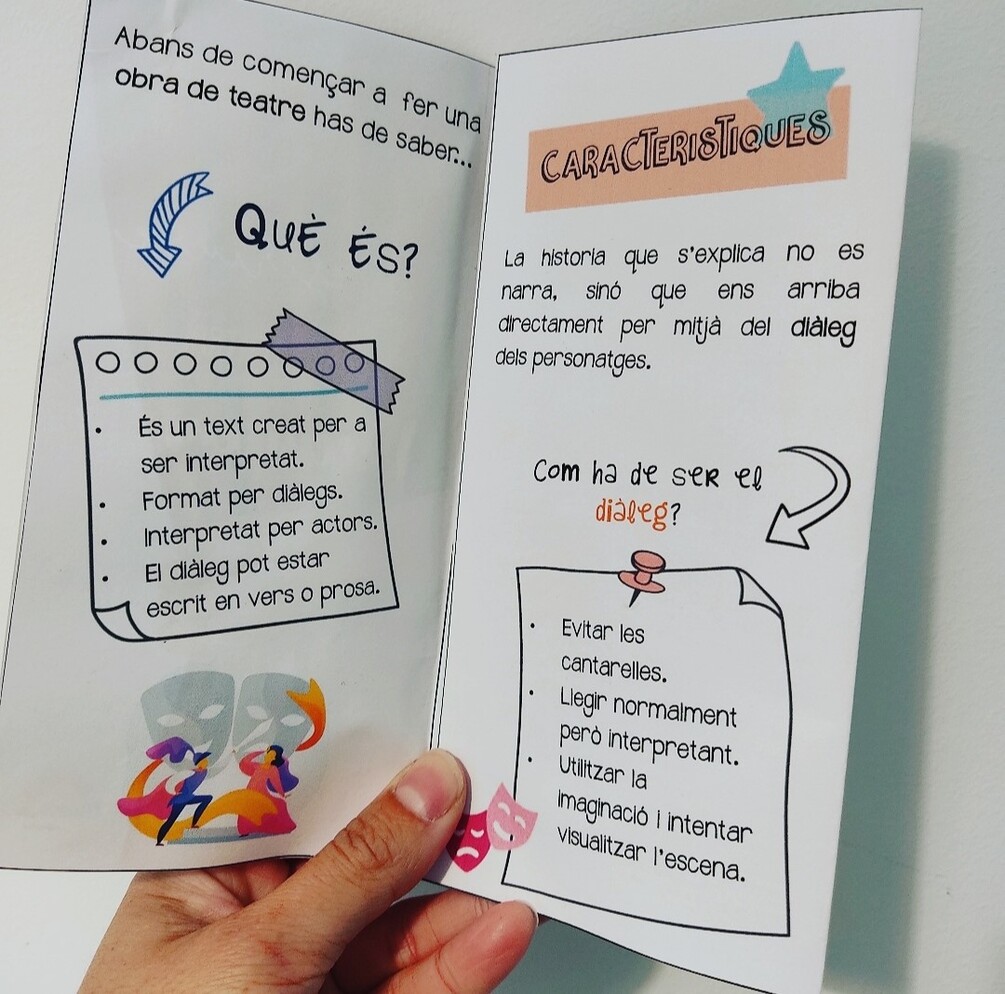 Abans de començar a fer una
obra de teatre has de saber...
QUÈ ÉS?
• És un text creat per a
ser interpretat.
• Format per diàlegs.
• Interpretat per actors.
• El diàleg pot estar
escrit en vers o prosa.
CARACTERISTIQUES
La historia que s'explica no es
narra, sinó que ens arriba
directament per mitjà del diàleg
dels personatges.
Com ha de ser el
diàleg?
• Evitar les
cantarelles.
• Llegir normalment
però interpretant.
• Utilitzar la
imaginació i intentar
visualitzar l'escena.